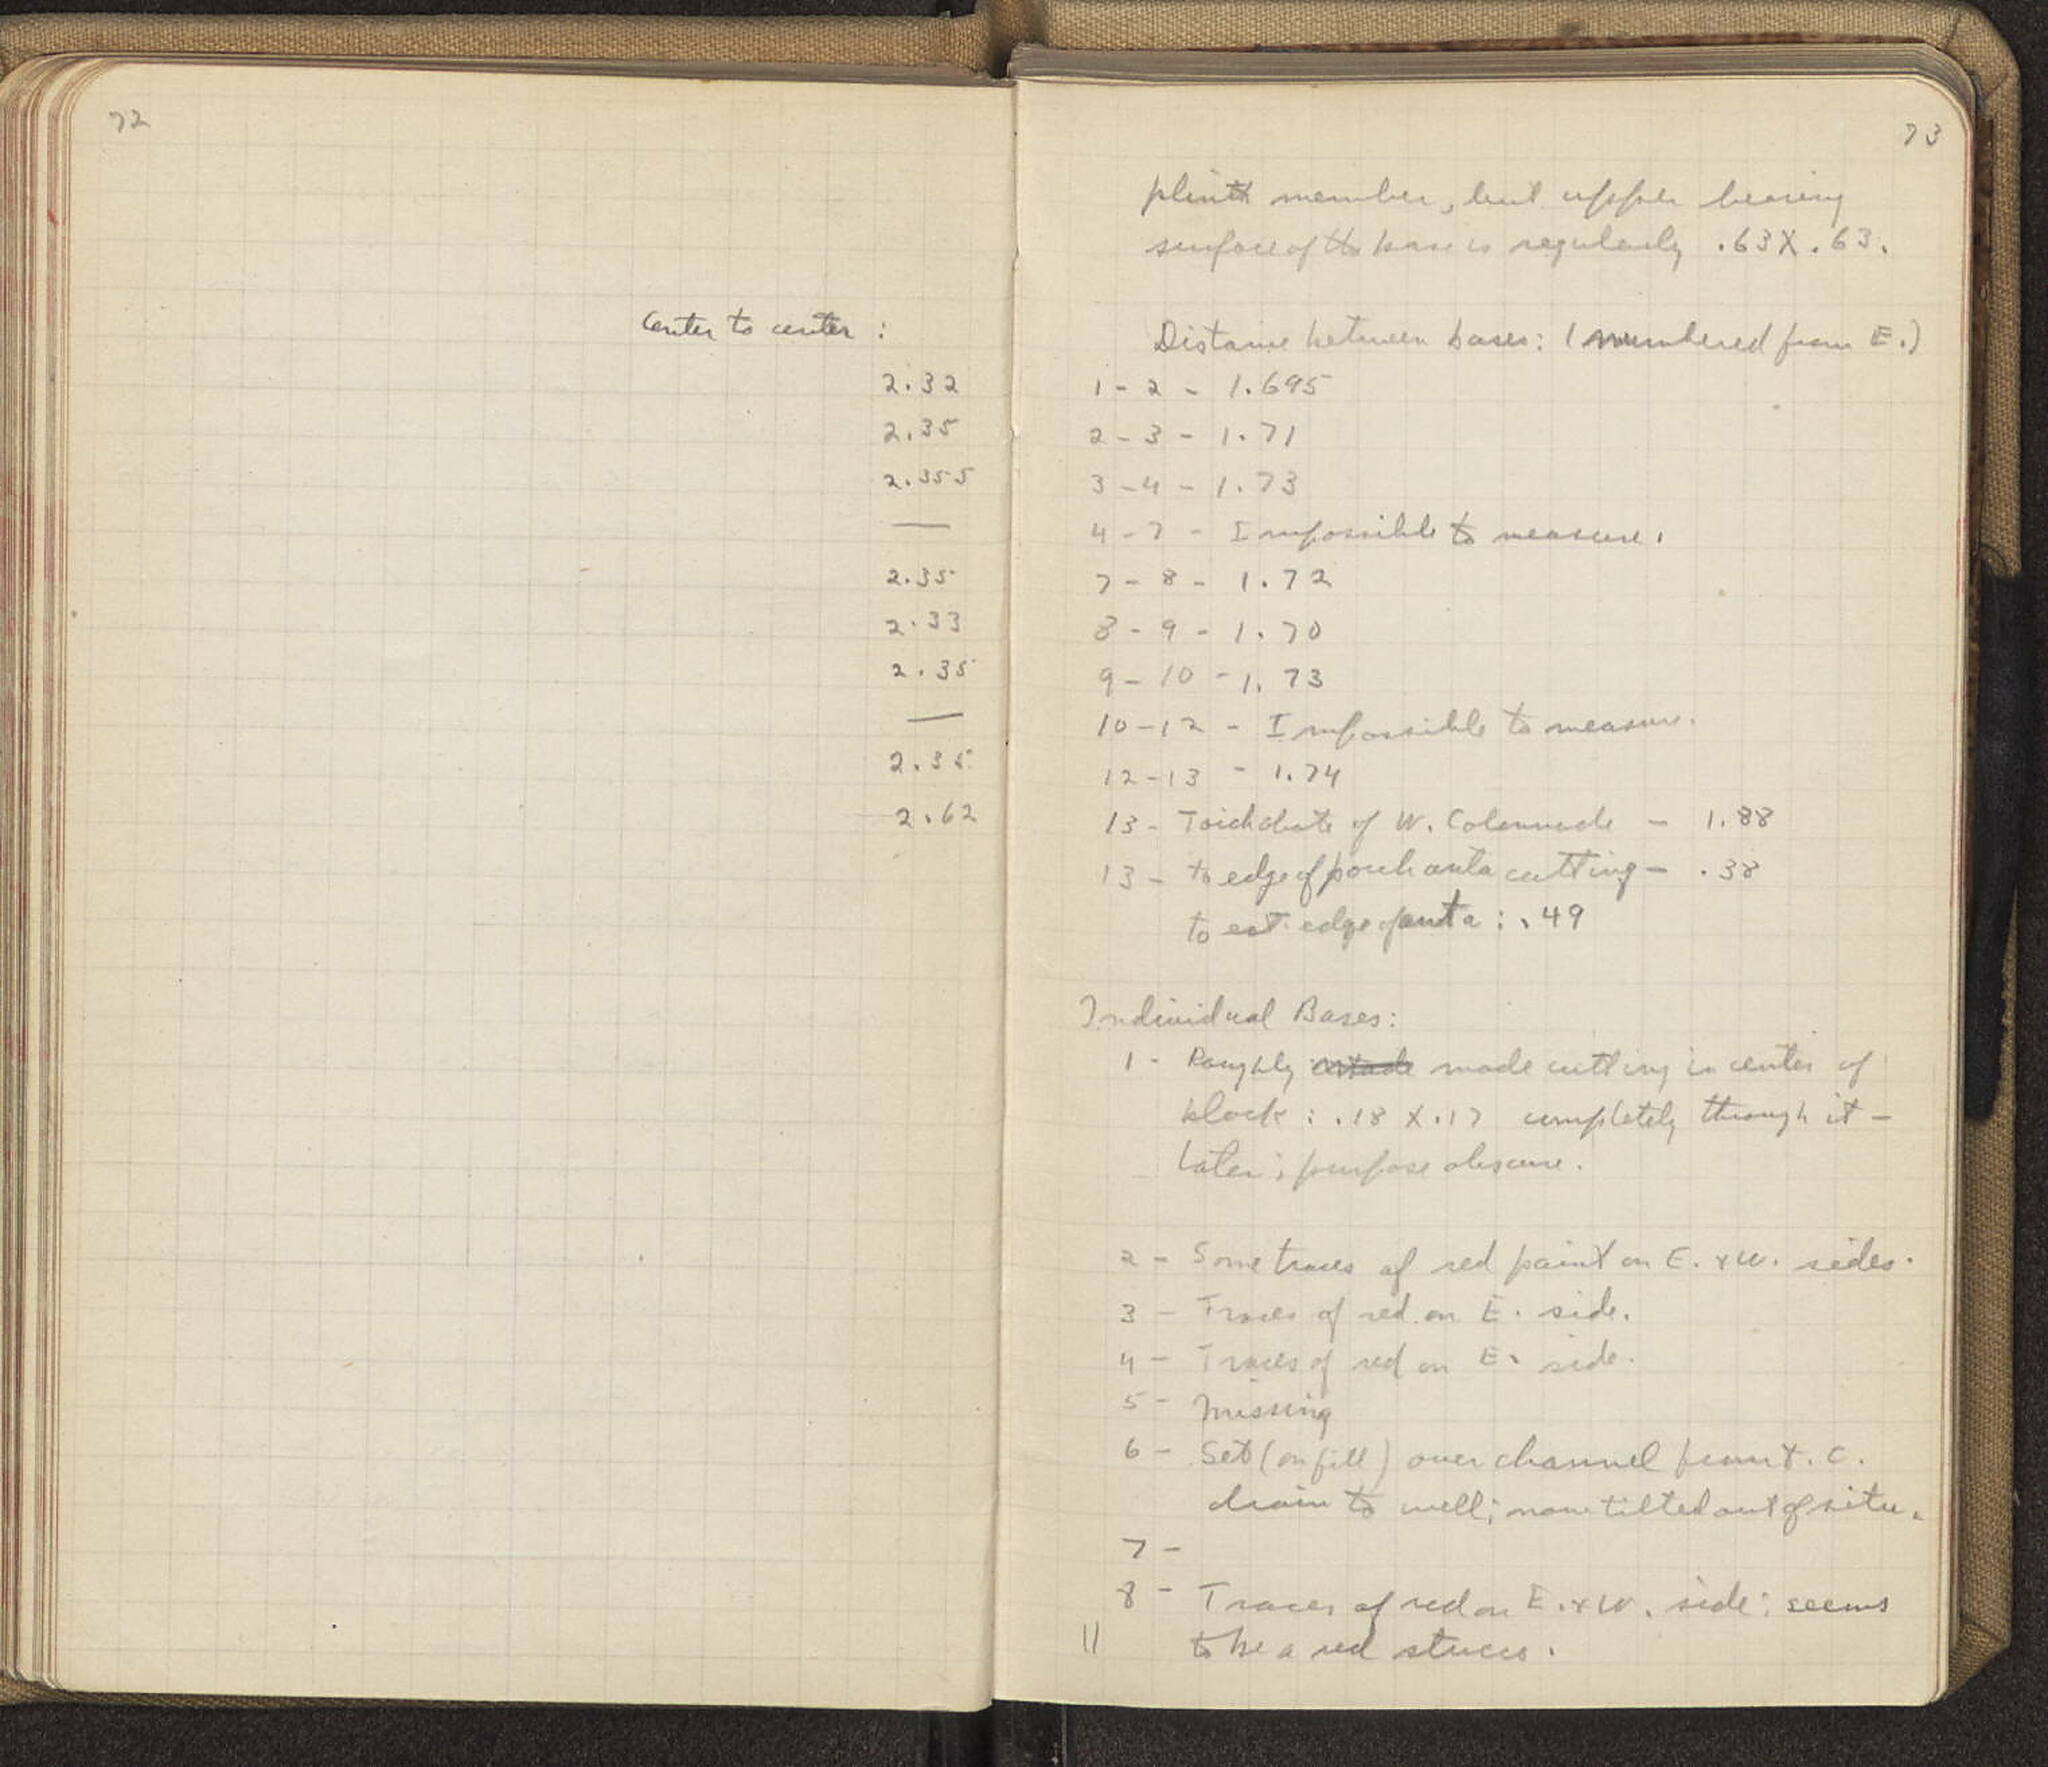 72
Center to center :
2.32
2.35
2.355
—
2.35
2.33
2.35
—
2.35
2.62
73
plinth member, but upper bearing
surface of the base is regularly .63 X .63.
Distance between bases: (numbered from E.)
1 - 2 - 1.695
2 - 3 - 1.71
3 - 4 - 1.73
4 - 7 - Impossible to measure.
7 - 8 - 1.72
8 - 9 - 1.70
9 - 10 - 1.73
10 - 12 - Impossible to measure.
12 - 13 - 1.74
13 - Toichobate of W. Colonnade - 1.88
13 - to edge of porch anta cutting - .38
to est. edge of anta : .49
Individual Bases:
1 - Roughly made cutting in center of
block : .18 X .17 completely through it -
later; purpose obscure.
2 - Some traces of red paint on E. + W. sides.
3 - Traces of red on E. side.
4 - Traces of red on E. side.
5 - Missing
6 - Set (on fill) over channel from t.c.
drain to well; now tilted out of situ.
7 -
8 - Traces of red on E. + W. side; seems
11 to be a red stucco.